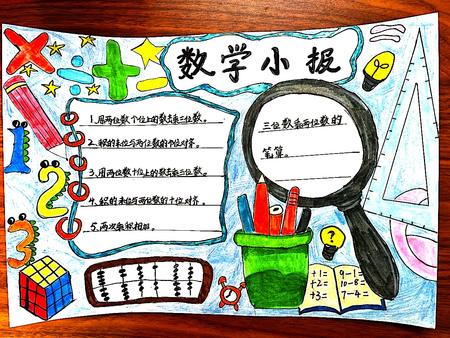 数学小报
1.用两位数个位上的数去乘三位数。
2.积的末位与两位数的个位对齐。
3.用两位数十位上的数去乘三位数。
4.积的末位与两位数的十位对齐。
5.两次乘积相加。
三位数乘两位数的
笔算。
1
2
3
?
+1=
+2=
+3=
9-1=
10-8=
7-4=